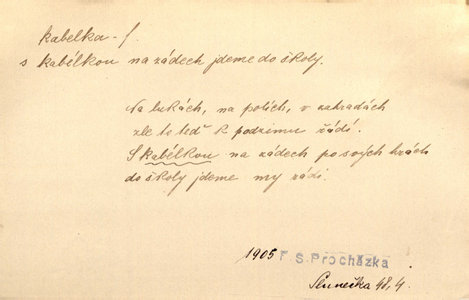 kabelka - f.
s kabélkou na zádech jdeme do školy.
Na lukách, na polích, v zahradách
zle to teď k podzimu řádí.
S kabélkou na zádech po svých hrách
do školy jdeme my rádi.
1905 F. S. Procházka
48, 4.